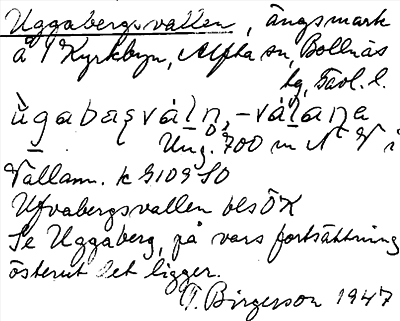 Uggabergsvallen, ängsmark
å 1 Kyrkbyn, Alfta sn, Bollnäs
tg, Gävl. l.
ùgabaṣvàḷn, -vàḷaṇa
Ung. 700 m N V i
Vallam. k 9109 SO
Ufvabergsvallen blsÖK
Se Uggaberg, på vars fortsättning
österut det ligger.
T. Birgerson 1947